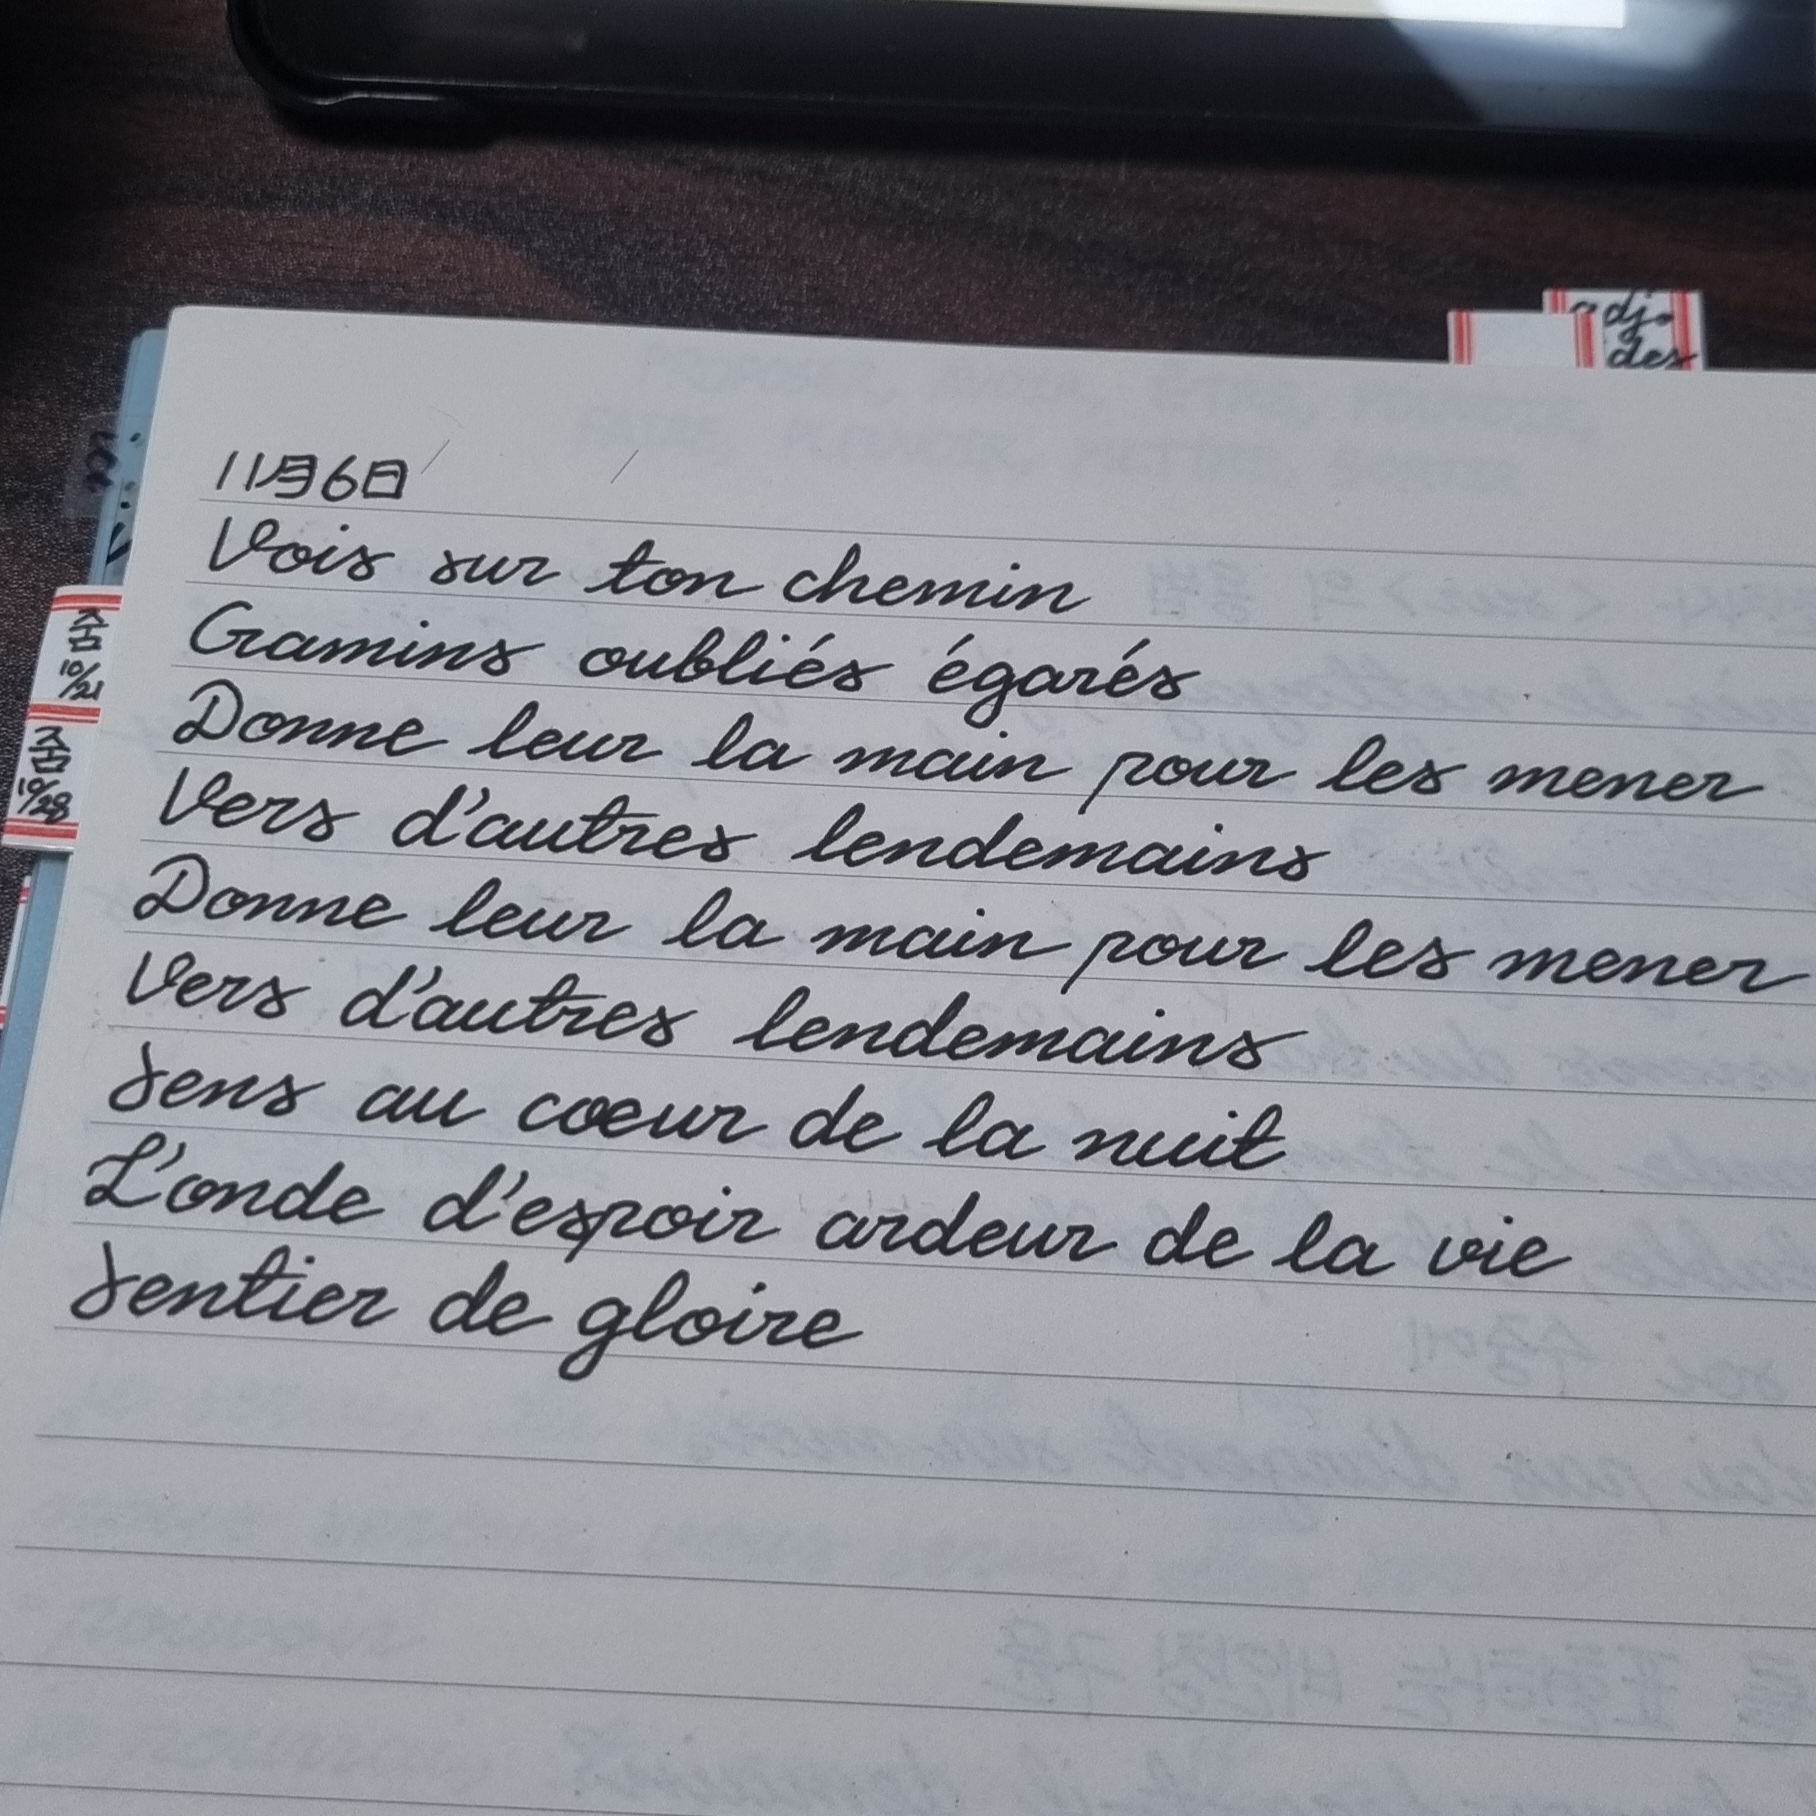 adj.
des
11月6日
Vois sur ton chemin
Gamins oubliés égarés
Donne leur la main pour les mener
Vers d'autres lendemains
Donne leur la main pour les mener
Vers d'autres lendemains
Sens au coeur de la nuit
L'onde d'espoir ardeur de la vie
Sentier de gloire
줌
10/21
줌
10/28